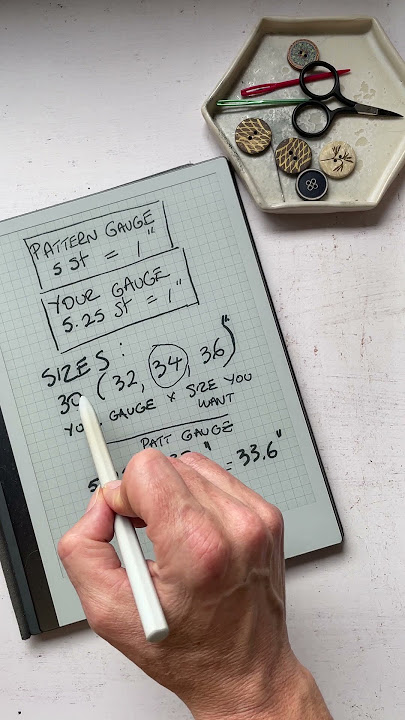 PATTERN GAUGE
5 St = 1"
YOUR GAUGE
5.25 St = 1"
SIZES:
30 (32, 34, 36)"
GAUGE × SIZE YOU
WANT
PATT GAUGE
= 33.6"